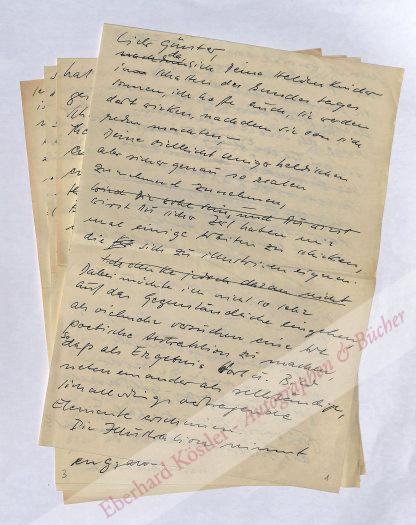 Lieber Günter,
da
nachdem sich Deine Heldenkinder
im Schatten des Bundestages
sonnen, ich hoffe auch, sie werden
dort wirken, nachdem sie von sich
reden machten,
Deine vielleicht weniger heldischen
aber sicher genau so realen
zunehmend zunehmen,
wird Dir wohl sein, und Du wirst
wirst Du sicher Zeit haben mir
mal einige Arbeiten zu schicken,
die sich zu illustrieren eignen.
Ich denke jedoch daran nicht
Dabei möchte ich nicht so sehr
auf das Gegenständliche eingehen
als vielmehr versuchen eine Art
poetische Abstraktion zu machen,
so daß als Ergebnis Wort u. Bild
nebeneinander als selbständige,
sich allerdings vertragende
Elemente erscheinen.
Die Illustration nimmt
3
1
Eberhard Köstler - Autographen & Bücher